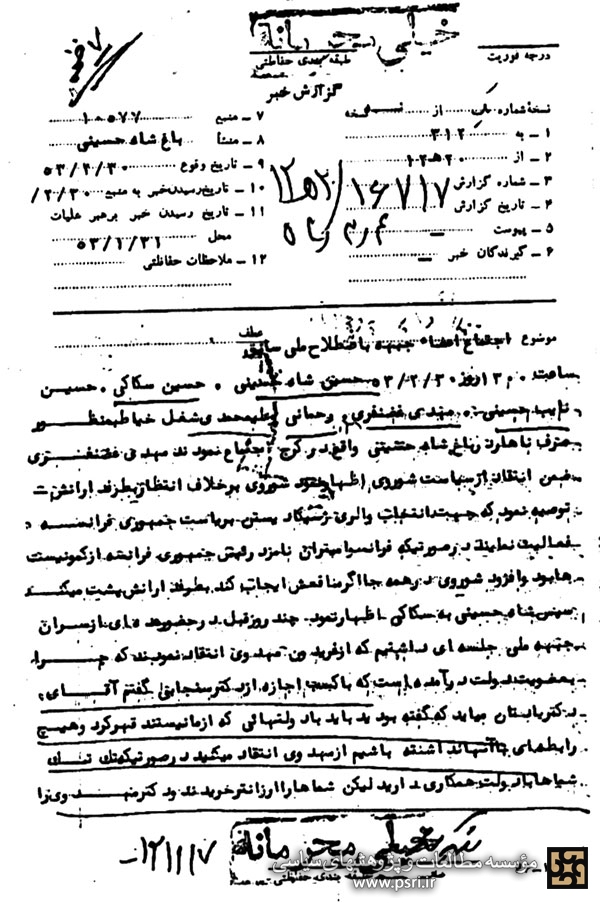 خیلی محرمانه
طبقه بندی حفاظتی
درجه فوریت
گزارش خبر
نسخه شماره یک از نسخه
۱ – به ۳۱۲
۲ – از ۲۰ ه‍ ۱۲
۳ – شماره گزارش
۴ – تاریخ گزارش
۵ – پیوست –
۶ – گیرندگان خبر –
۷ – منبع ۱۰۵۷۷
۸ – منشأ باغ شاه حسینی
۹ – تاریخ وقوع ۵۳/۲/۳۰
۱۰ – تاریخ رسیدن خبر به منبع ۲/۳۰/
۱۱ – تاریخ رسیدن خبر برهبر عملیات
محل ۵۳/۲/۳۱
۱۲ – ملاحظات حفاظتی
موضوع اجتماع اعضاء جبهه باصطلاح ملی سابق
عطف
ساعت ۱۳۰۰ روز ۵۳/۲/۳۰ حسین شاه حسینی، حسین سکاکی، حسین
نایب حسینی، مهدی غضنفری، رحمانی شغل خیاط بمنظور
صرف ناهار در باغ شاه حسینی واقع در کرج اجتماع نمودند مهدی غضنفری
ضمن انتقاد از سیاست شوروی اظهار نمود شوروی برخلاف انتظار بطرفدارانش
توصیه نمود که جهت انتخاب والری ژیسکار دستن بریاست جمهوری فرانسه
فعالیت نمایند در صورتیکه فرانسوا میتران نامزد رئیس جمهوری فرانسه از کمونیست
ها بود وافزود شوروی در همه جا اگر منافعش ایجاب کند بطرفدارانش پشت میکند
سپس شاه حسینی به سکاکی اظهار نمود چند روز قبل در حضور عده ای از سران
جبهه ملی جلسه ای داشتیم که از فریدون مهدوی انتقاد نمودند که چرا
بعضویت دولت در آمده است که با کسب اجازه از دکتر سنجابی گفتم آقای
دکتر یادتان بیاید که گفته بودید باید با دولتهائی که از ما نیستند قهر کرد و هیچ
رابطه‌ای با آنها نداشته باشیم از مهدوی انتقاد میکنید در صورتیکه تک تک
شماها با دولت همکاری دارید لیکن شماها را ارزانتر خریدند و دکتر مهدوی را
خیلی محرمانه
طبقه بندی حفاظتی
۱۲۱۱/۷–
مؤسسه مطالعات و پژوهشهای سیاسی
www.psri.ir